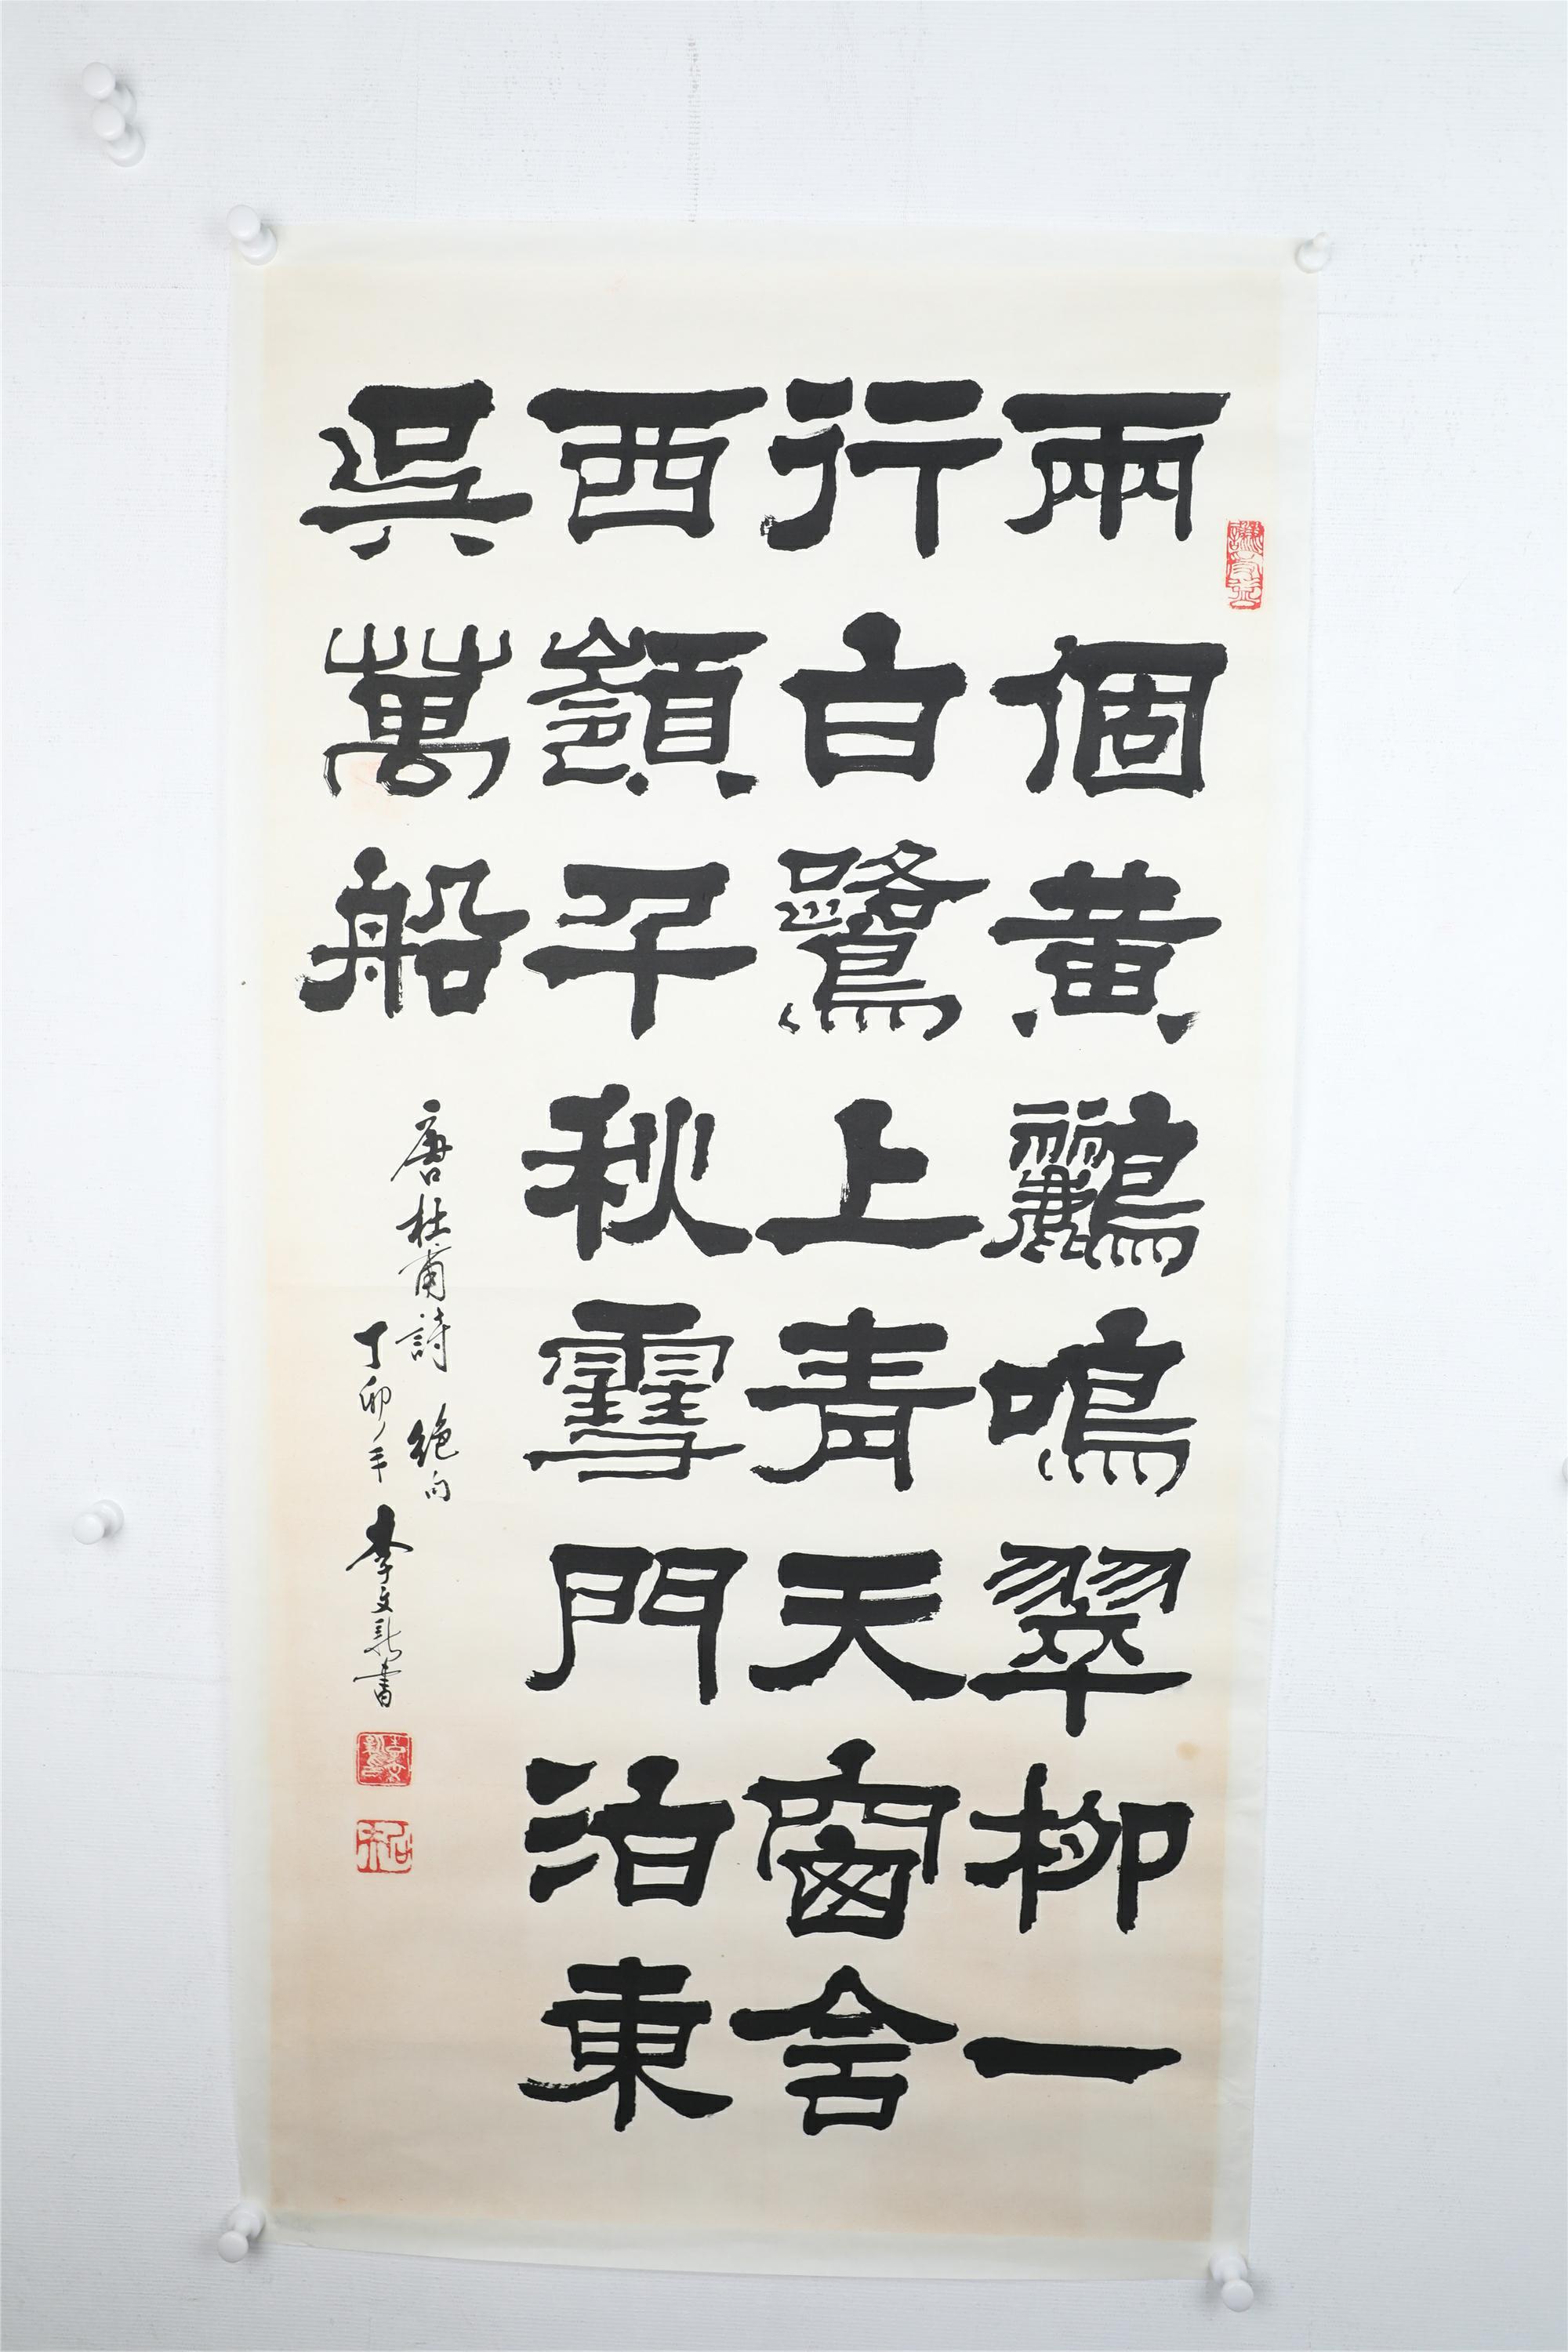 兩個黃鸝鳴翠柳一
行白鷺上青天窗含
西嶺千秋雪門泊東
吳萬船
唐杜甫詩 絕句
丁卯年 李文新書
謙受益